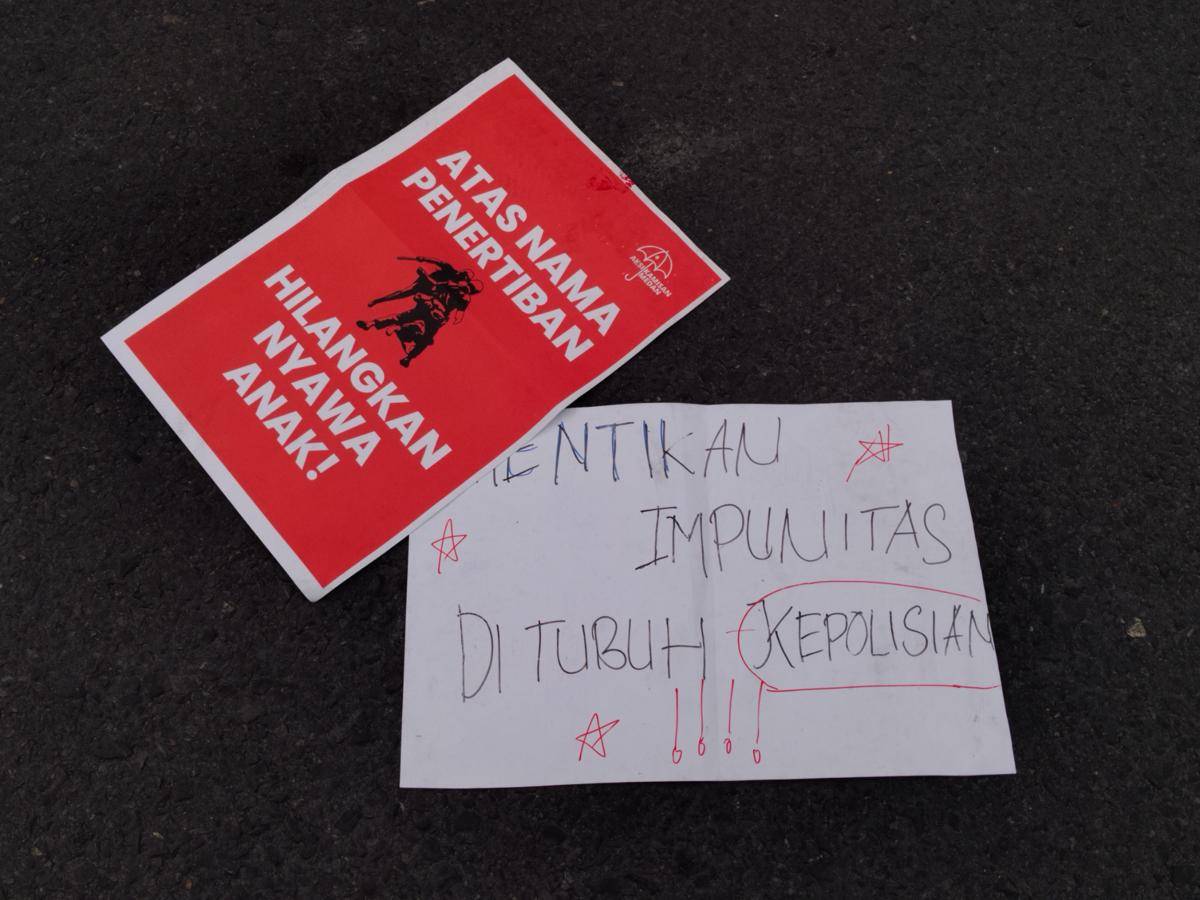 ATAS NAMA
PENERTIBAN
HILANGKAN
NYAWA
ANAK!
AKSI KAMISAN
MEDAN
ENTIKAN
IMPUNIITAS
DI TUBUH KEPOLISIAN
!!!!